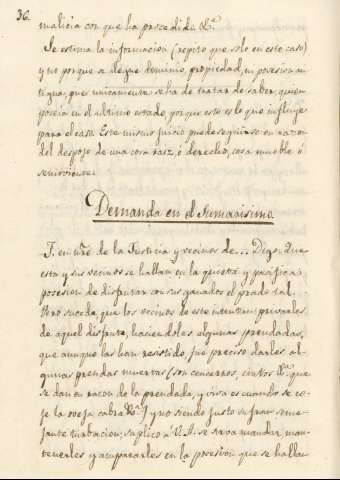 36.
malicia con que ha procedido &.ª
Se estima la informacion (repito que solo en este caso)
y no porque se alegue dominio, propiedad, ni posesion an
tigua; pues unicamente se ha de tratar de saber, quien
poseia en el ultimo estado, porque esto es lo que influye
para el caso. Este mismo juicio puede seguirse en razon
del despojo de una cosa raiz, o derecho, cosa mueble ó
semoviente.
Demanda en el Sumarisimo
F. en nre. de la Justicia y vecinos de... Digo: Que
esta y sus vecinos se hallan en la quieta y pacifica
posesion de disfrutar con sus ganados el prado tal.
Pero sucede que los vecinos de este intentan privarles
de aquel disfrute, haciendoles algunas prendadas,
que aunque las han resistido fue preciso darles al-
gunas prendas muertas (son cencerros, cintos &.ª que
se dan en razon de la prendada, y viva es cuando se co-
je la oveja cabra &.ª) y no siendo justo sufran seme-
jante turbacion; suplico á V. A. se sirva mandar, man-
tenerles y ampararles en la posesion que se hallan